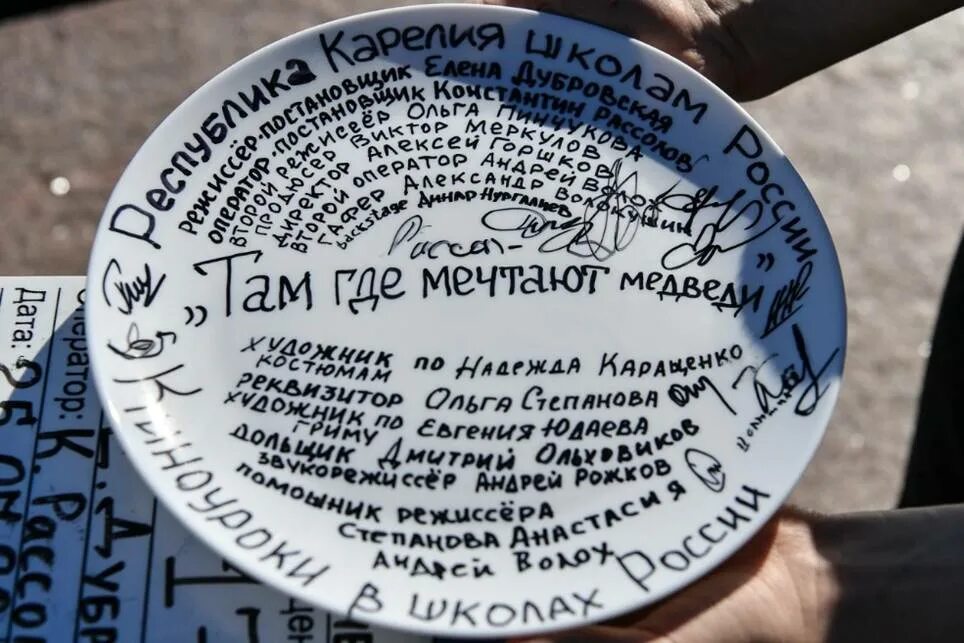 Республика Карелия школам России
режиссёр-постановщик Елена Дубровская
оператор-постановщик Константин Рассолов
второй режиссёр Ольга Пинчукова
продюсер Виктор Меркулов
директор Алексей Горшков
второй оператор Андрей Волох
гафер Александр Волокушин
backstage Динар Нургалиев
Рассол-
„Там где мечтают медведи”
художник по костюмам Надежда Каращенко
реквизитор Ольга Степанова
художник по гриму Евгения Юдаева
дольщик Дмитрий Ольховиков
звукорежиссёр Андрей Рожков
помошник режиссёра
Степанова Анастасия
Андрей Волох
Киноуроки в школах России
Дата: 25
К. Рассол